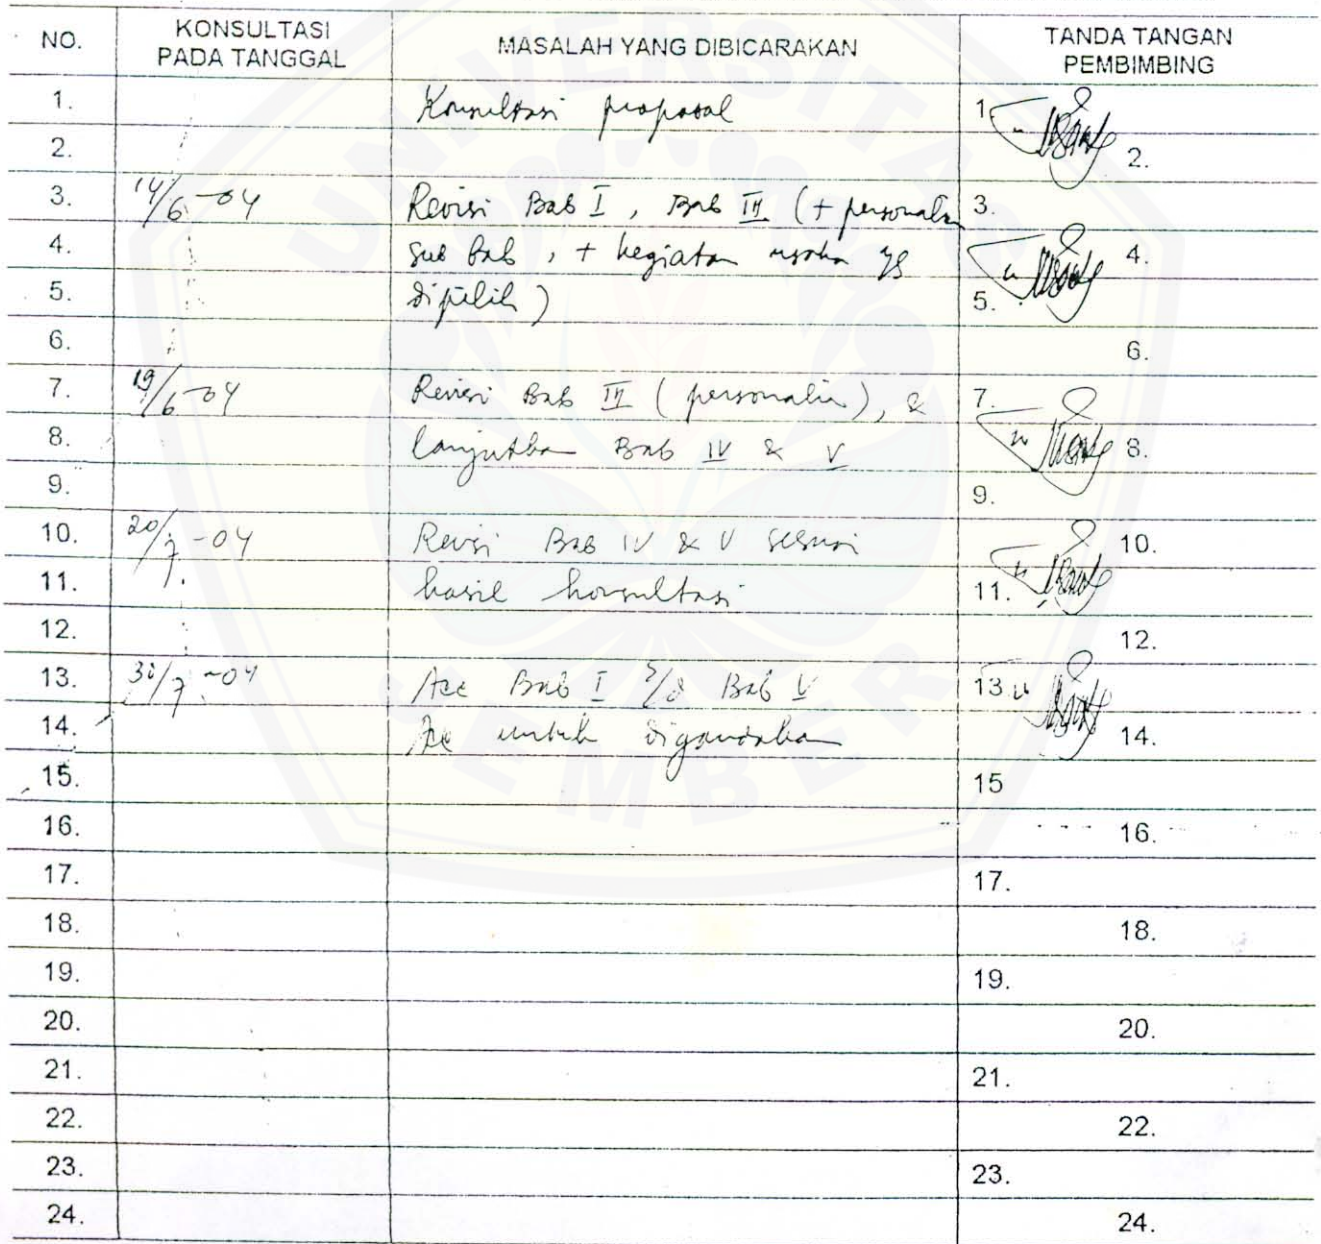 NO. KONSULTASI PADA TANGGAL MASALAH YANG DIBICARAKAN TANDA TANGAN PEMBIMBING
1. Konsultasi proposal 1
2. 2.
3. 14/6-04 Revisi Bab I, Bab III (+ personalia 3.
4. sub bab, + kegiatan usaha yg 4.
5. dipilih) 5.
6. 6.
7. 19/6-04 Revisi Bab III (personalia), & 7.
8. lanjutkan Bab IV & V 8.
9. 9.
10. 20/7-04 Revisi Bab IV & V sesuai 10.
11. hasil konsultasi 11.
12. 12.
13. 30/7-04 Acc Bab I s/d Bab V 13
14. Acc untuk digandakan 14.
15. 15
16. 16.
17. 17.
18. 18.
19. 19.
20. 20.
21. 21.
22. 22.
23. 23.
24. 24.
UNIVERSITAS
JEMBER